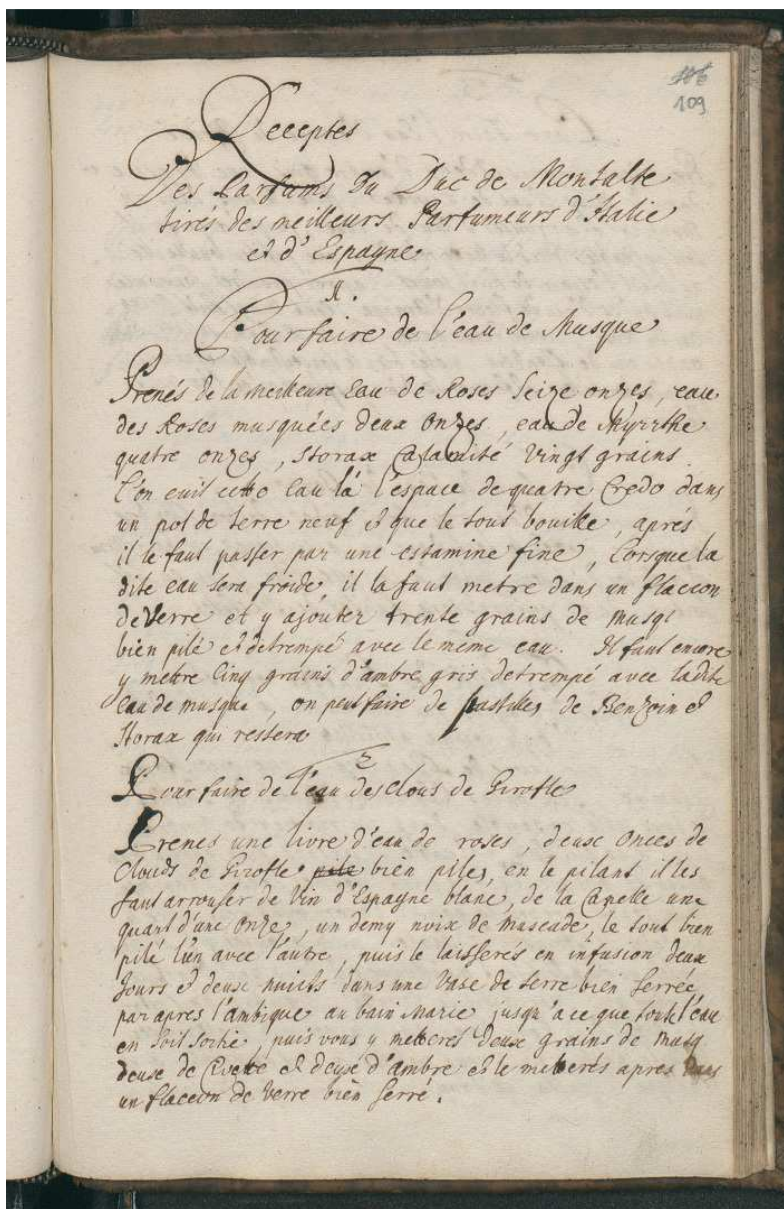 106
109
Receptes
Des Parfums du Duc de Montalte
tirés des meilleurs Parfumeurs d'Italie
et d'Espagne
1.
Pour faire de l'eau de Musque
Prenés de la meilleure Eau de Roses Seize onzes, eau
des Roses musquées deux onzes, eau de Myrrthe
quatre onzes, Storax Calamité Vingt grains.
L'on cuit cette Eau là l'espace de quatre Credo dans
un pot de terre neuf et que le tout bouille, aprés
il le faut passer par une estamine fine, Lorsque la
dite eau sera froide, il la faut metre dans un flaccon
de Verre et y ajouter trente grains de musq;
bien pilé et detrempé avec le meme eau. Il faut encore
y mettre Cinq grains d'ambre gris detrempé avec ladite
Eau de musque, on peut faire de pastilles de Benzoin et
Storax qui restera
2
Pour faire de l'eau des clous de Girofle
Prenes une livre d'eau de roses, deux onces de
Clouds de Girofle pile bien piles, en le pilant il les
faut arrouser de Vin d'Espagne blanc, de la Canelle une
quart d'une onze, un demy noix de muscade, le tout bien
pilé l'un avec l'autre, puis le laisserés en infusion deux
Jours et deux nuicts dans une Vase de terre bien serrée
par apres l'ambique au bain Marie jusqu'a ce que toute l'eau
en soit sortie, puis vous y metterés deux grains de musq
deux de Civette et deux d'ambre et le metterés apres dans
un flaccon de Verre bien serré.